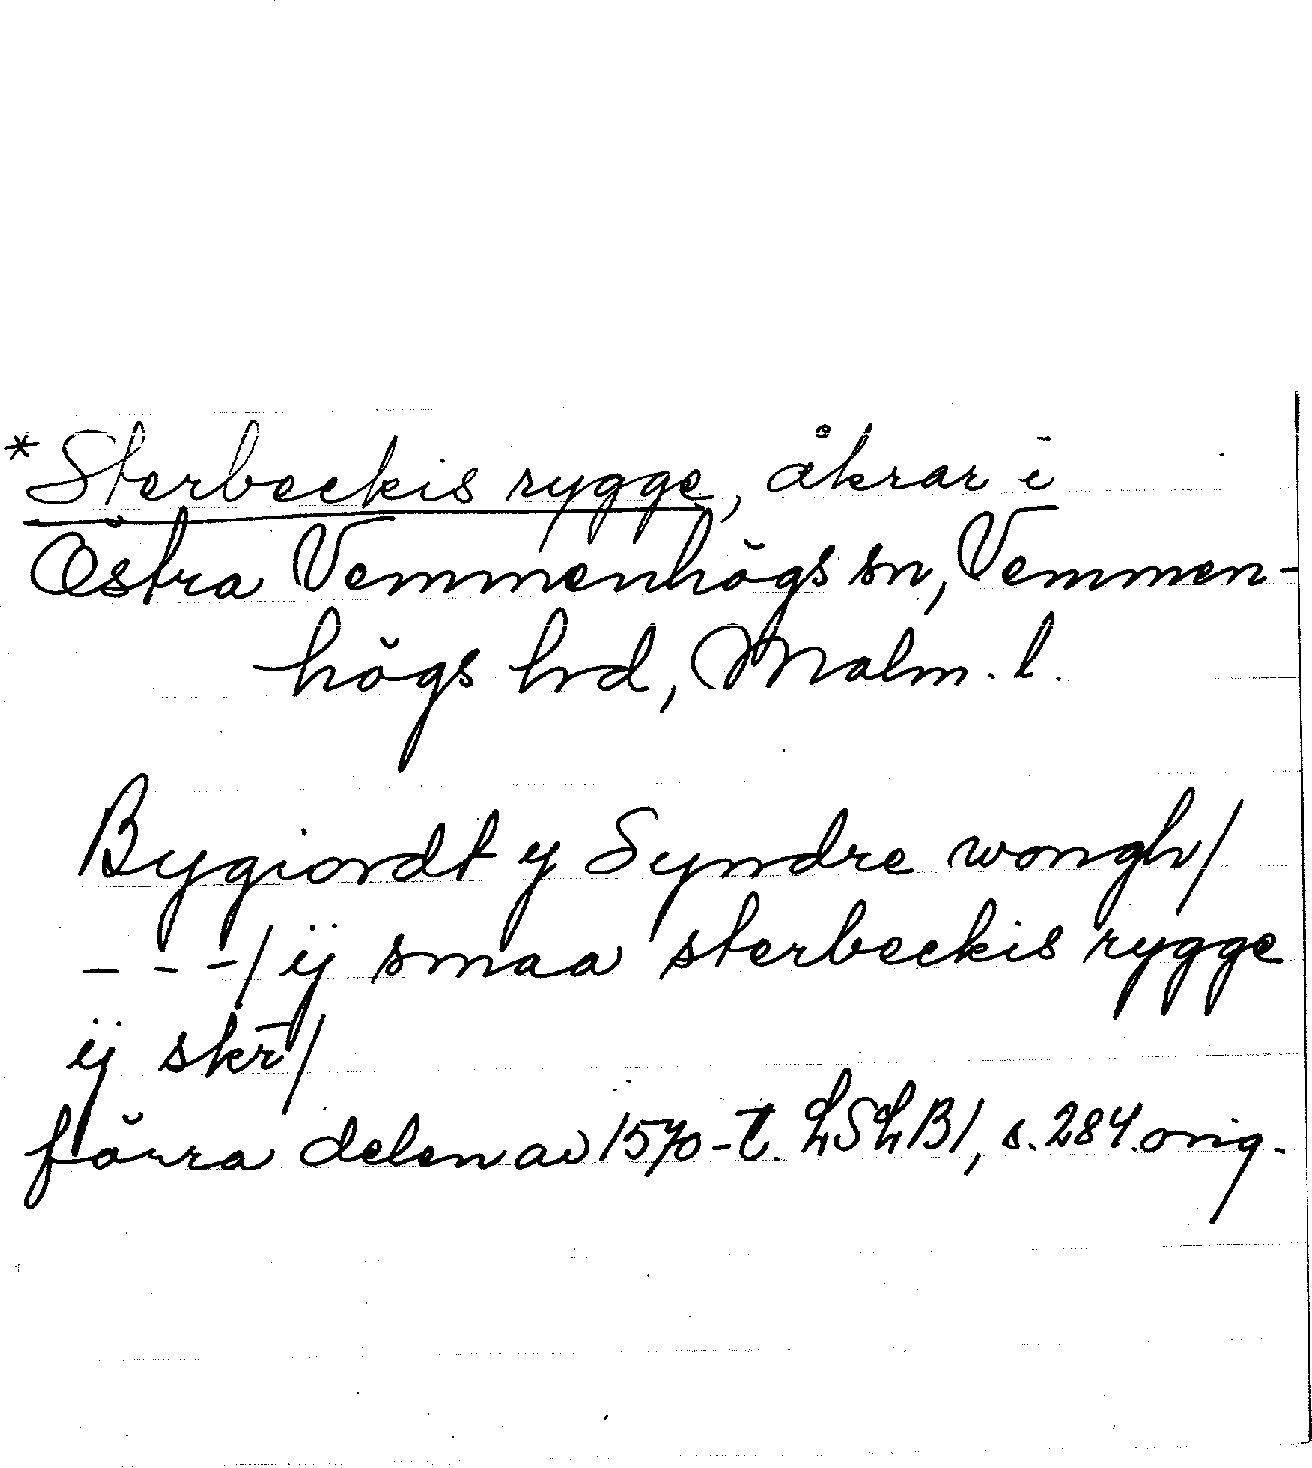 *Sterbeckis rygge, åkrar i
Östra Vemmenhögs sn, Vemmen-
högs hd, Malm. l.
Bygiordt y Syndre wongh/
- - -/ ÿ smaa sterbeckis rygge
ÿ skr̄/
förra delen av 1570-t. LSLB1, s. 284 orig.